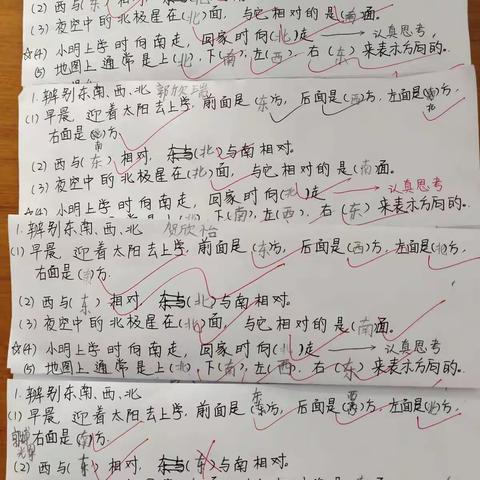 (2) 西与(东)相对, 东与(北)与南相对。
(3) 夜空中的北极星在(北)面, 与它相对的是(南)面。
☆(4) 小明上学时向南走, 回家时向(北)走 → 认真思考,
(5) 地图上通常是上(北), 下(南), 左(西), 右(东)来表示方向的。
1. 辨别东、南、西、北
(1) 早晨, 迎着太阳去上学, 前面是(东)方, 后面是(西)方, 左面是(北)方,
右面是(南)方
(2) 西与(东)相对, 东与(北)与南相对。
(3) 夜空中的北极星在(北)面, 与它相对的是(南)面。
☆(4) 小明上学时向南走, 回家时向(北)走 → 认真思考
下(南), 左(西), 右(东)来表示方向的。
1. 辨别东、南、西、北
(1) 早晨, 迎着太阳去上学, 前面是(东)方, 后面是(西)方, 左面是(北)方,
右面是(南)方。
(2) 西与(东)相对, 东与(北)与南相对。
(3) 夜空中的北极星在(北)面, 与它相对的是(南)面。
☆(4) 小明上学时向南走, 回家时向(北)走 → 认真思考
(5) 地图上通常是上(北), 下(南), 左(西), 右(东)来表示方向的。
1. 辨别东、南、西、北
(1) 早晨, 迎着太阳去上学, 前面是(东)方, 后面是(西)方, 左面是(北)方,
右面是(南)方。
(2) 西与(东)相对, 东与(东)与南相对。